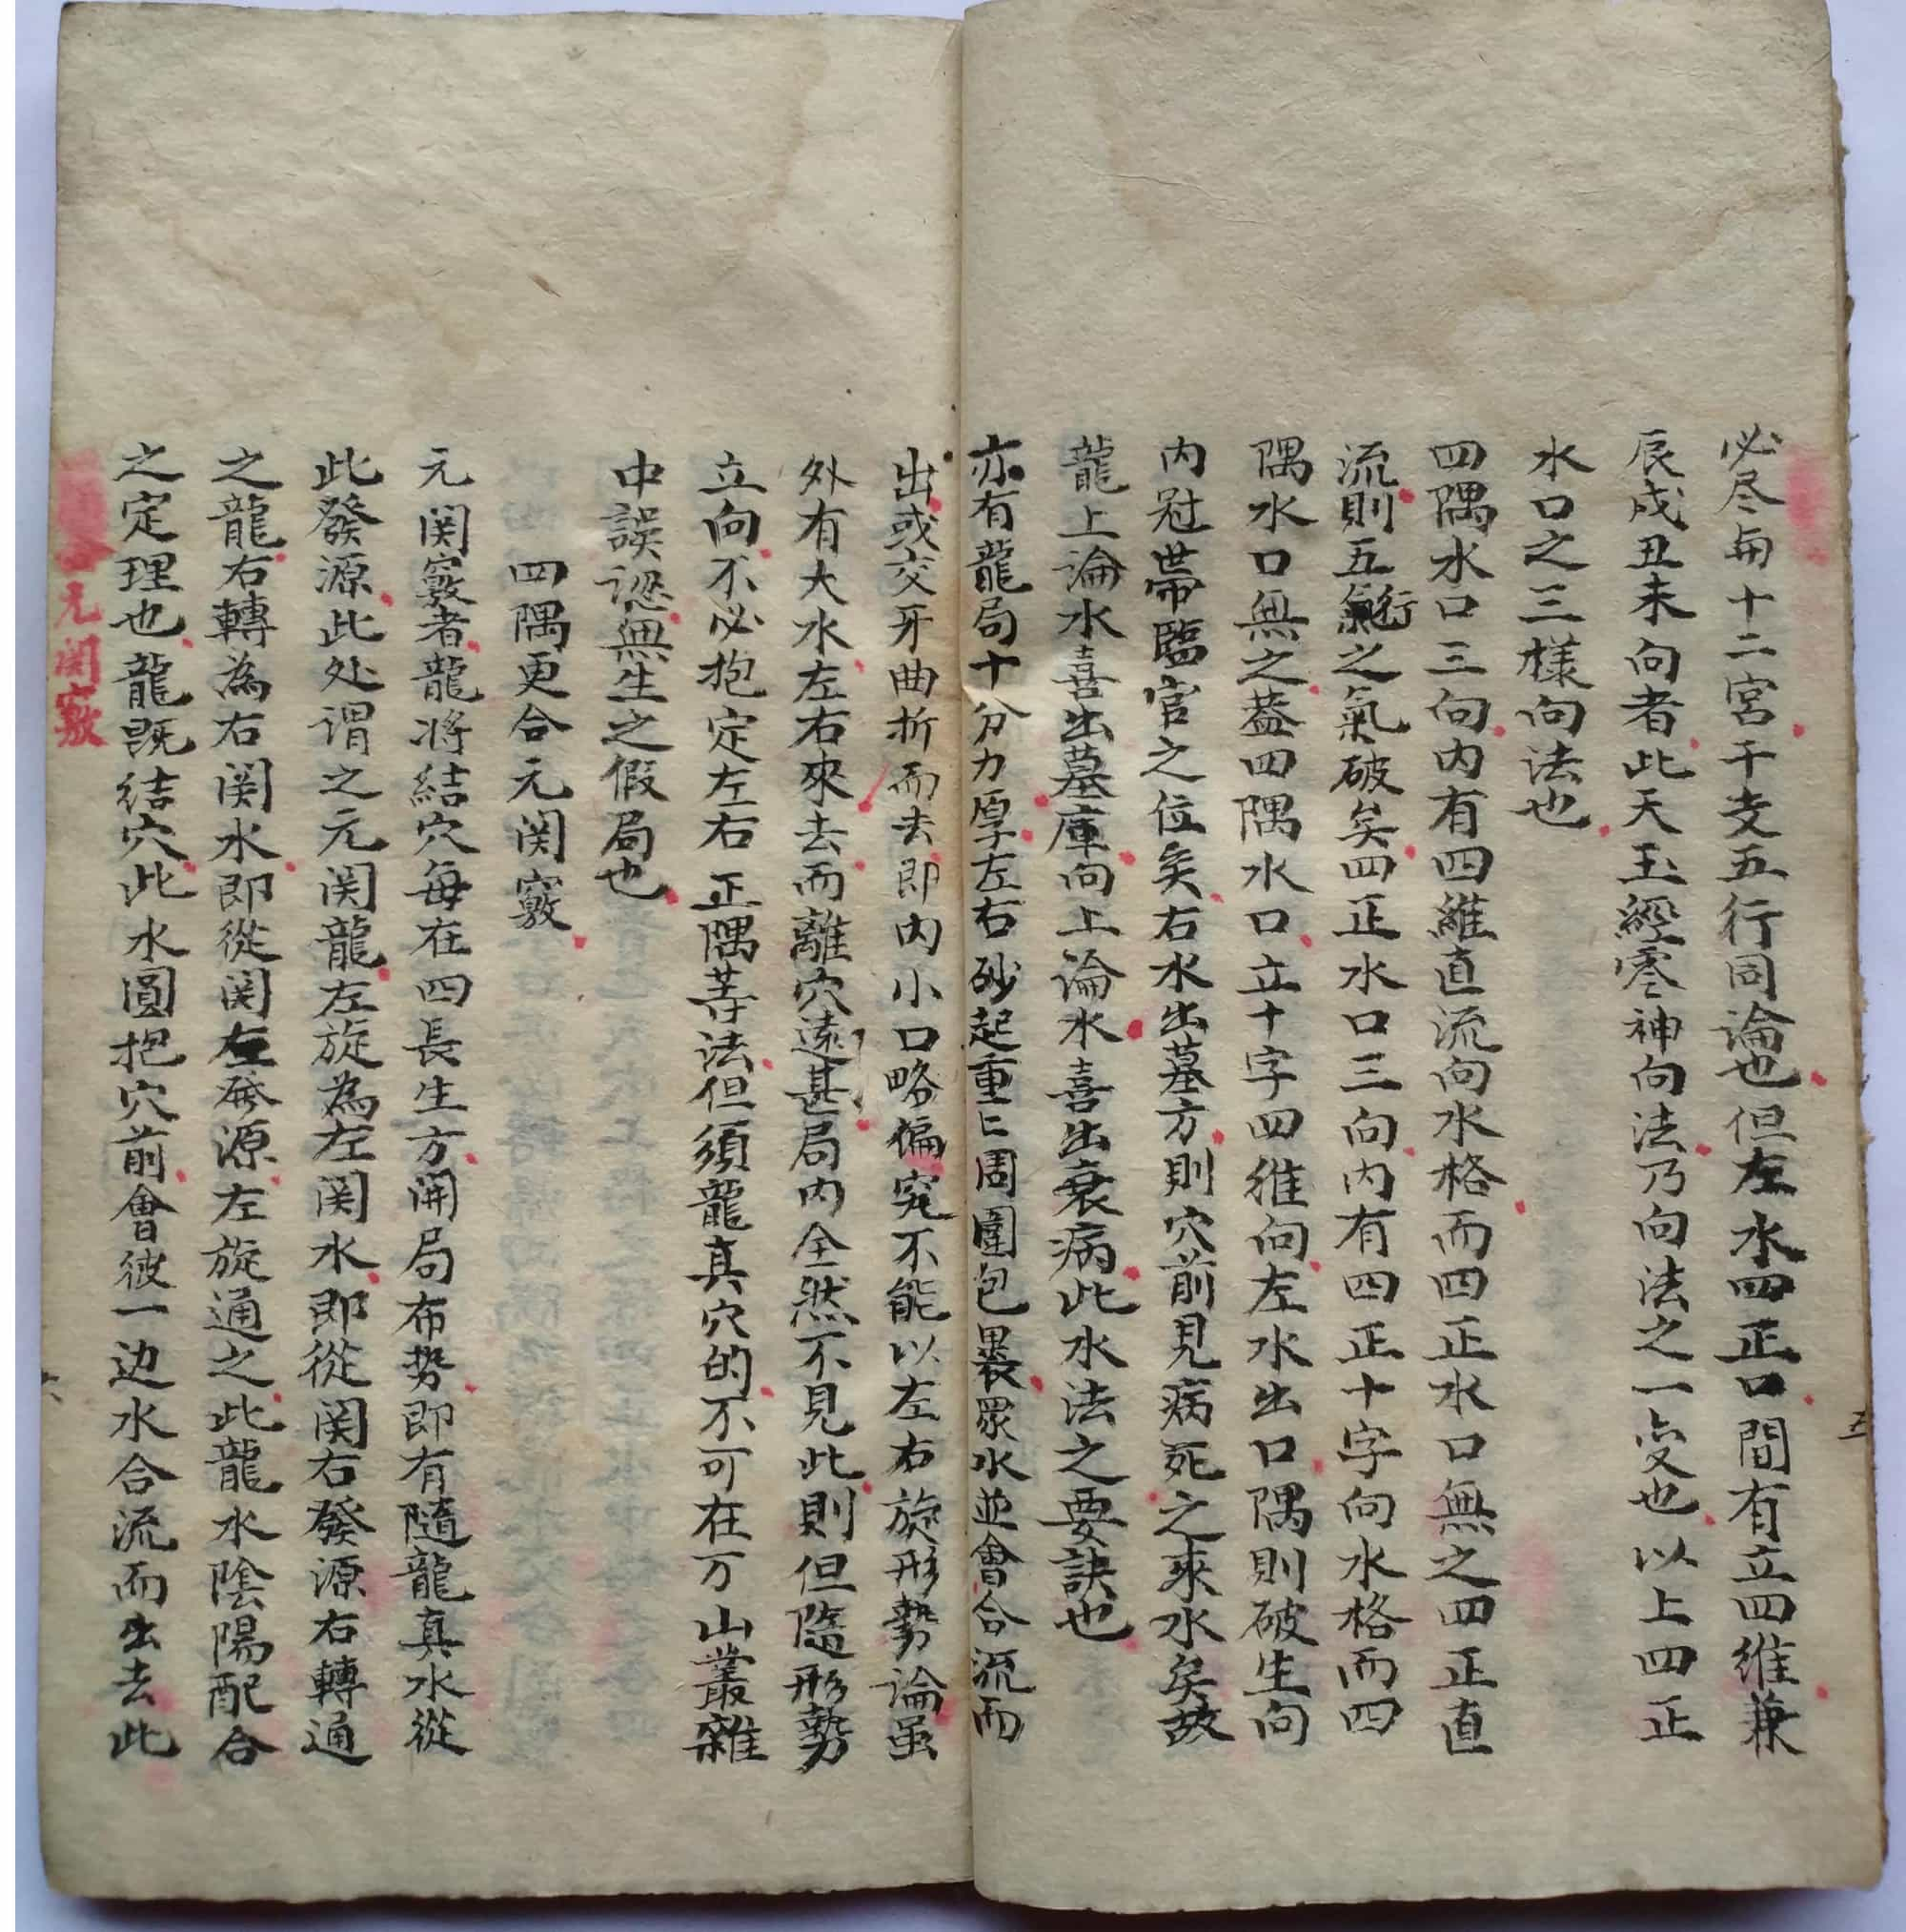 必尽每十二宮干支五行同論也但左水四正口間有立四維兼
辰戌丑未向者此天玉經零神向法乃向法之一变也以上四正
水口之三樣向法也
四隅水口三向内有四維直流向水格而四正水口無之四正直
流則五行之氣破矣四正水口三向内有四正十字向水格而四
隅水口無之葢四隅水口立十字四維向左水出口隅則破生向
内冠帶臨官之位矣右水出墓方則穴前見病死之來水矣故
龍上論水喜出墓庫向上論水喜出衰病此水法之要訣也
亦有龍局十分力厚左右砂起重〻周圍包裹眾水並會合流而
出或交牙曲折而去即内小口略偏究不能以左右旋形勢論虽
外有大水左右來去而離穴遠甚局内全然不見此則但隨形勢
立向不必抱定左右正隅等法但須龍真穴的不可在万山叢雜
中誤認無生之假局也
四隅更合元関竅
元関竅者龍将結穴每在四長生方開局布势即有隨龍真水從
此發源此处谓之元関龍左旋為左関水即從関右發源右轉通
之龍右轉為右関水即從関左發源左旋通之此龍水陰陽配合
之定理也龍既結穴此水圓抱穴前會彼一边水合流而出去此
元関竅
五
六